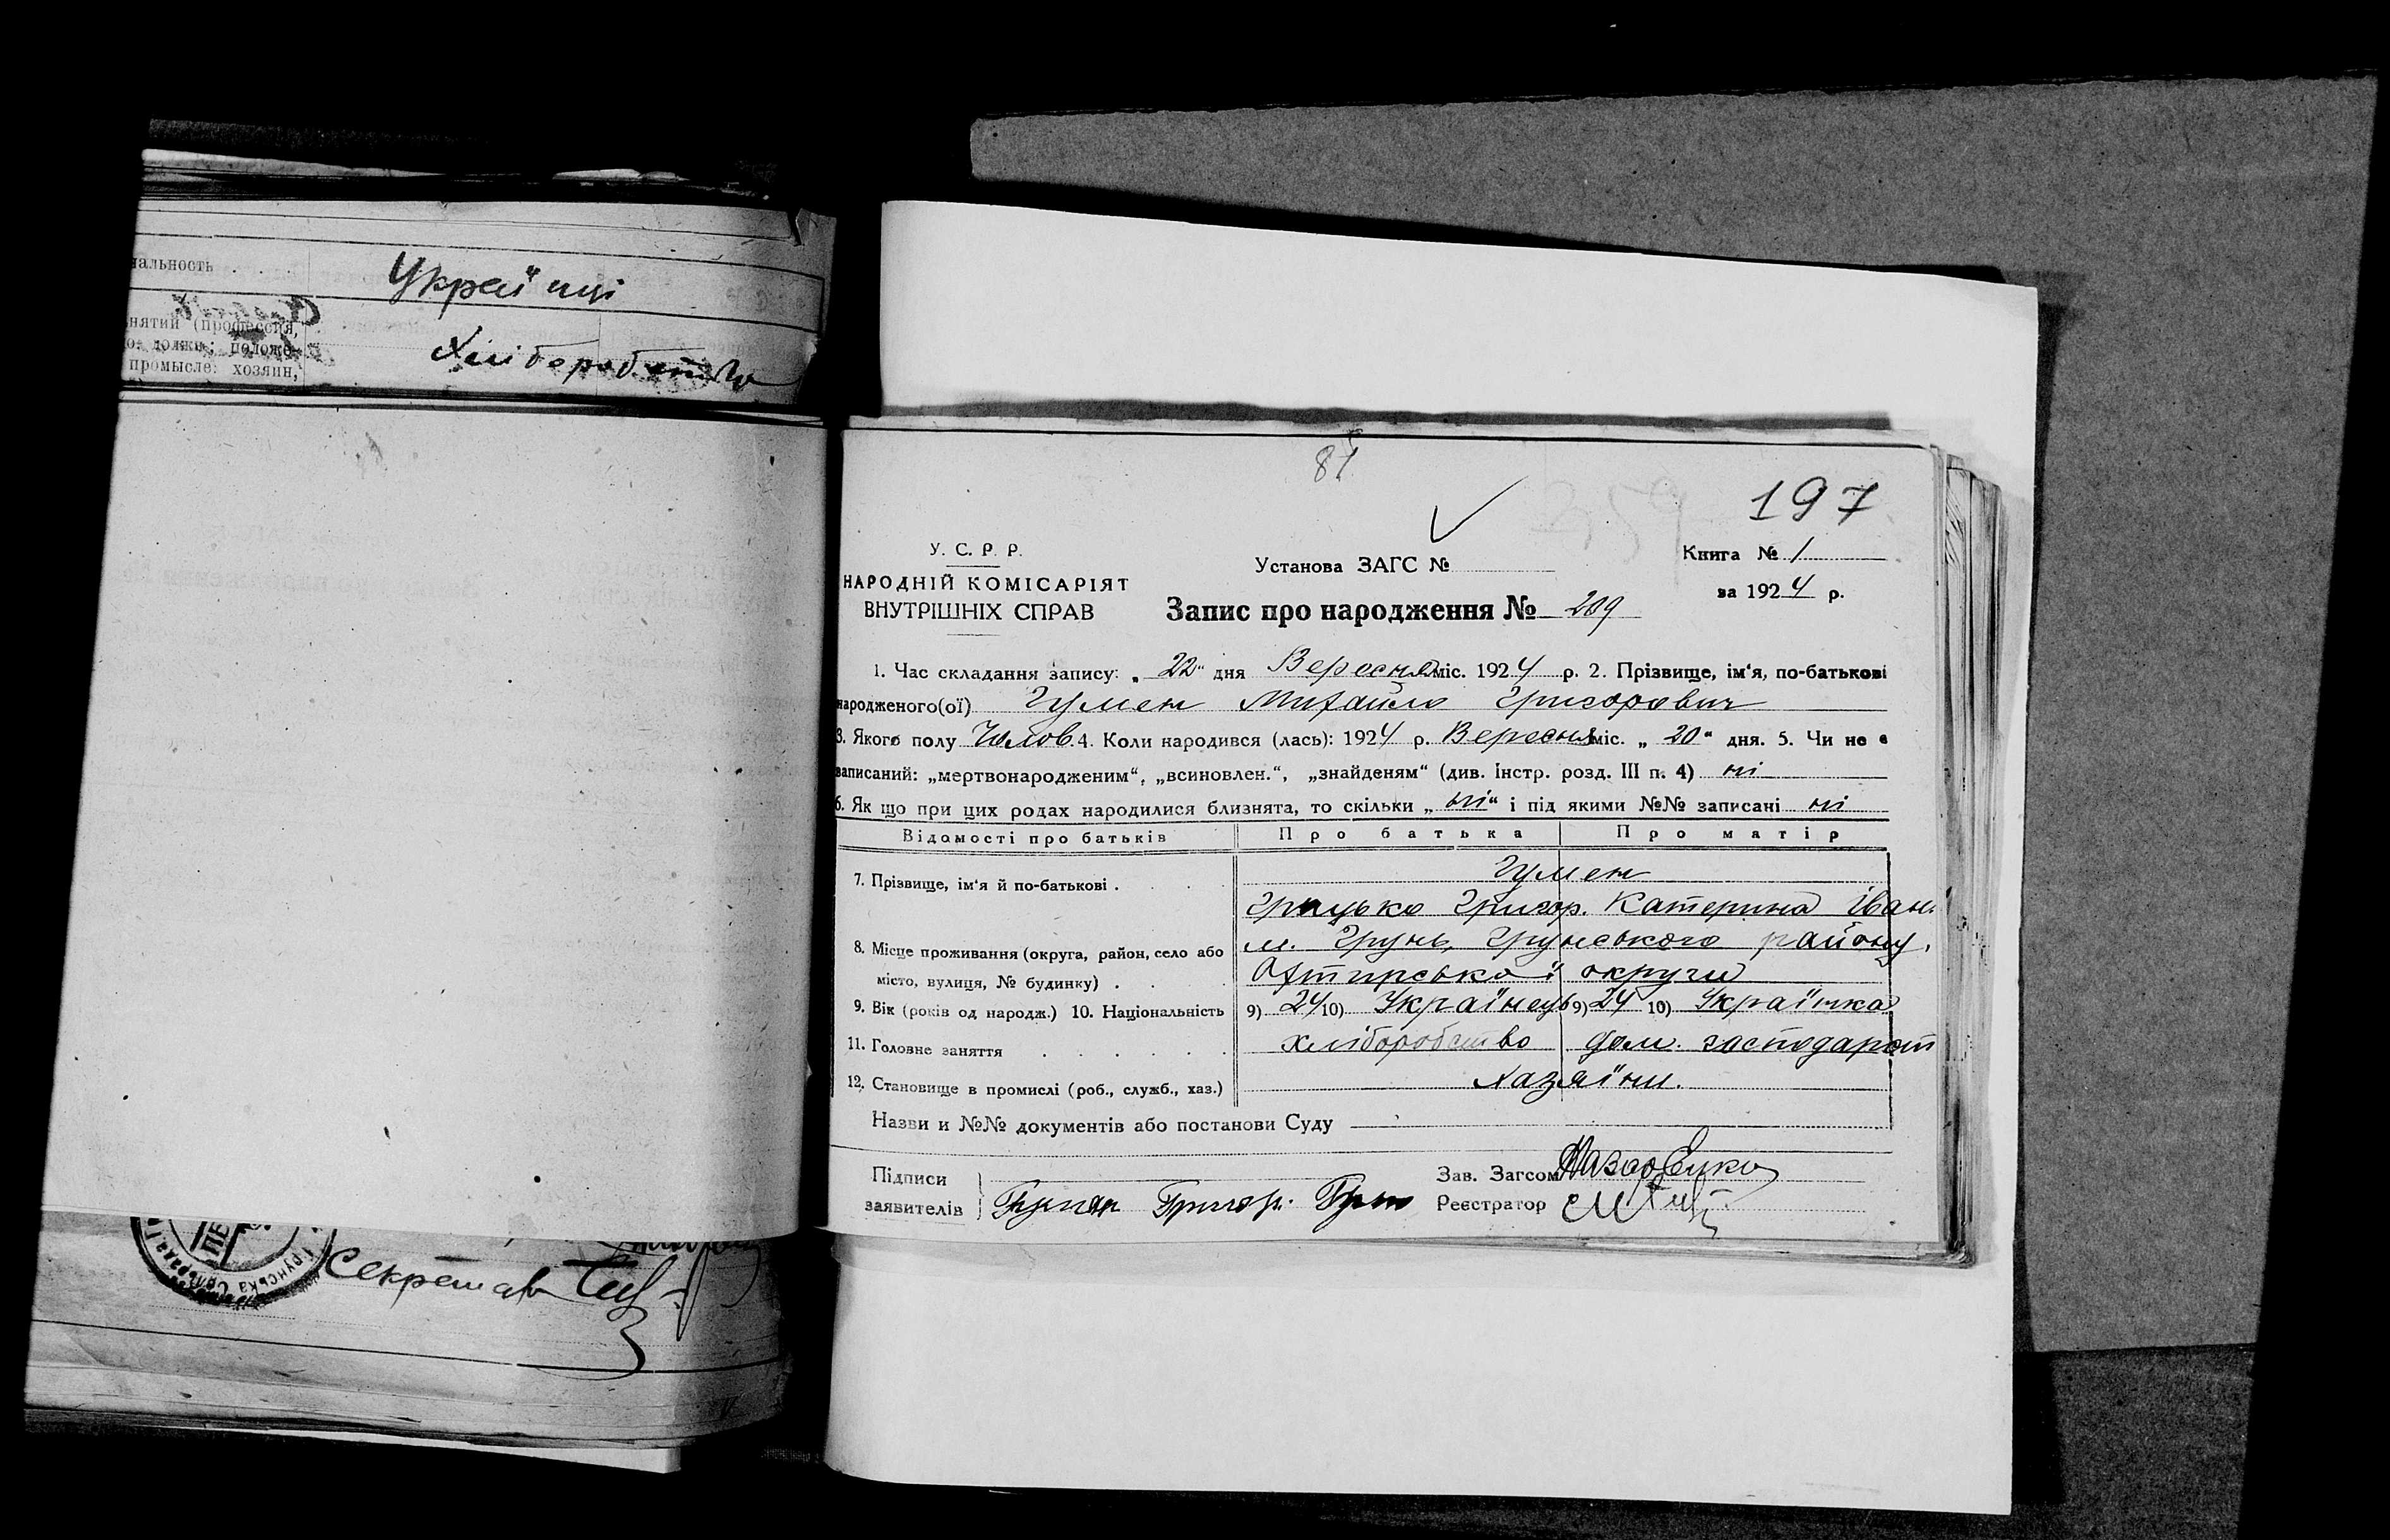 нальность . . .
Украї нці
нятий (профессия,
о. должн; положе-
промысле: хозяин,
Хліборобство
Секретар
Грунська
81
197
У. С. Р. Р.
НАРОДНІЙ КОМІСАРІЯТ
ВНУТРІШНІХ СПРАВ
Установа ЗАГС №
Книга № 1
за 1924 р.
Запис про народження № 209
1. Час складання запису: „ 22" дня Вересня міс. 1924 р. 2. Прізвище, ім'я, по-батькові
народженого(ої) Гумен Михайло Григорович
3. Якого полу Чолов. 4. Коли народився (лась): 1924 р. Вересня міс. „ 20" дня. 5. Чи не є
записаний: „мертвонародженим", „всиновлен.", „знайденям" (див. Інстр. розд. III п. 4) ні
6. Як що при цих родах народилися близнята, то скільки „ ні" і під якими №№ записані ні
Відомості про батьків Про батька Про матір
7. Прізвище, ім'я й по-батькові . Гумен
Грицько Григор. Катерина Іван.
8. Місце проживання (округа, район, село або м. Грунь, Грунського району,
місто, вулиця, № будинку) . Охтирської округи
9. Вік (років од народж.) 10. Національність 9) 24 10) Українець 9) 24 10) Українка
11. Головне заняття хліборобство дом. господарст
12. Становище в промислі (роб., служб., хаз.) Хазяїни.
Назви и №№ документів або постанови Суду
Підписи
заявителів Гумен Григор.
Зав. Загсом
Реєстратор